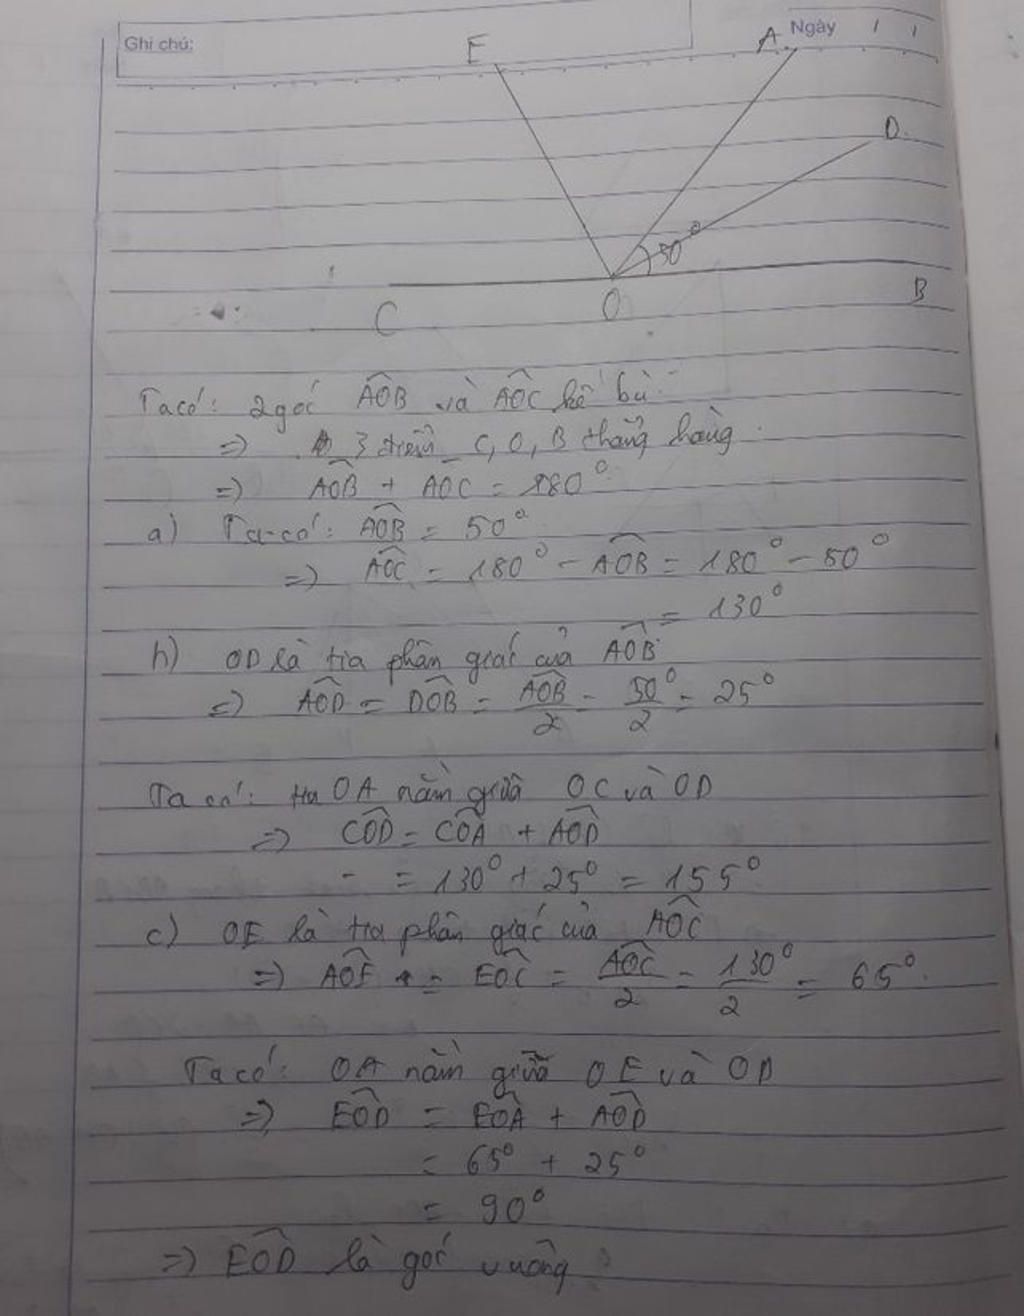 Ghi chú:
Ngày / /
E
A
D
50°
C
O
B
Ta có: 2 góc AÔB và AÔC kề bù
=> 3 điểm C, O, B thẳng hàng.
=> AÔB + AOC = 180°
a) Ta có: AÔB = 50°
=> AÔC = 180° - AÔB = 180° - 50°
= 130°
b) OD là tia phân giác của AÔB
=> AÔD = DÔB = AÔB/2 = 50°/2 = 25°
Ta có: tia OA nằm giữa OC và OD
=> CÔD = CÔA + AÔD
= 130° + 25° = 155°
c) OE là tia phân giác của AÔC
=> AÔE = EÔC = AÔC/2 = 130°/2 = 65°.
Ta có: OA nằm giữa OE và OD
=> EÔD = EÔA + AÔD
= 65° + 25°
= 90°
=> EÔD là góc vuông